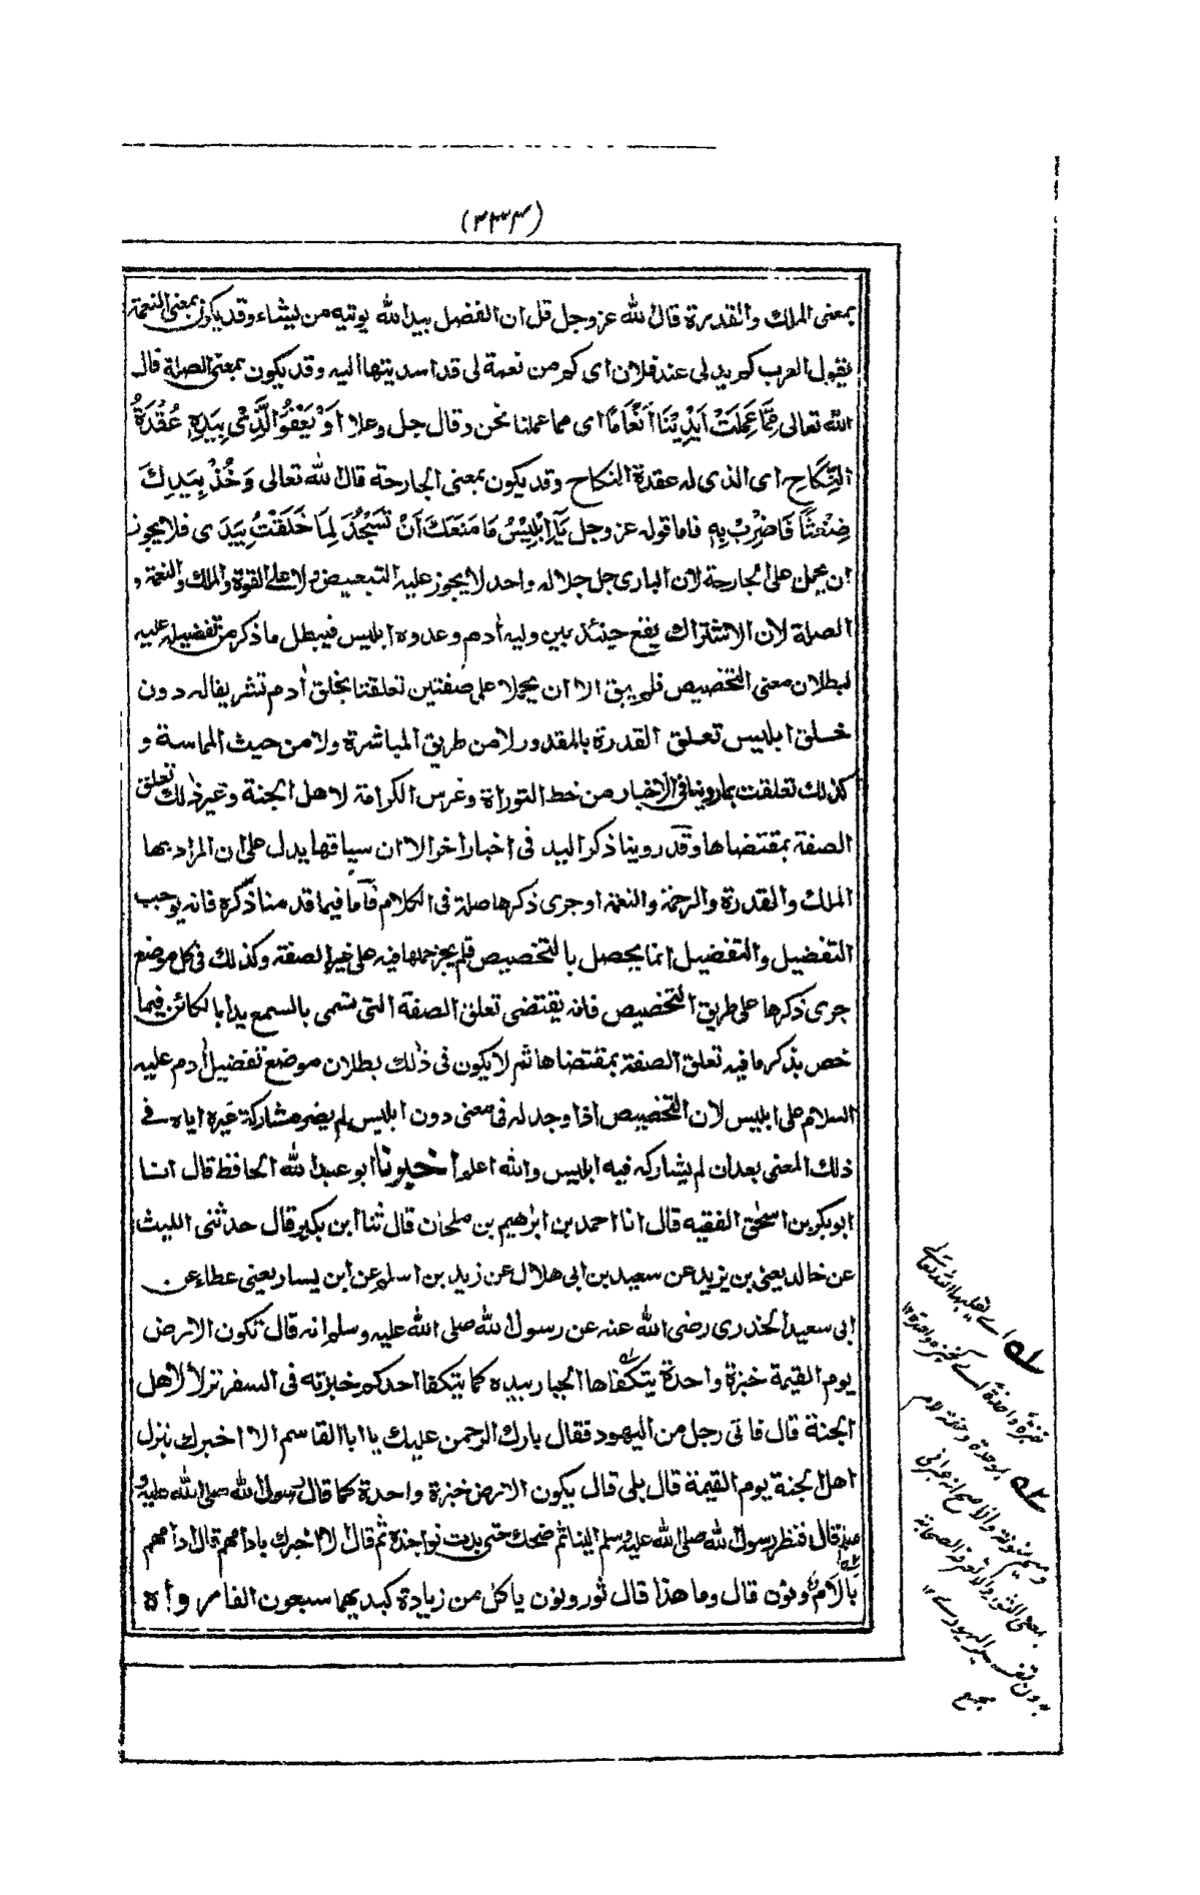 (٢٣٣)
بمعنى الملك والقدرة قال الله عز وجل قل ان الفضل بيد الله يوتيه من يشاء وقد يكون بمعنى النعمة
يقول العرب كم يد لى عند فلان اى كم من نعمة لى قد اسديتها اليه وقد يكون بمعنى الصلة قال
الله تعالى مِمَّا عَمِلَتْ اَيْدِيْنَا اَنْعَامًا اى مما عملنا نحن وقال جل وعلا اَوْ يَعْفُوَ الَّذِىْ بِيَدِهٖ عُقْدَةُ
النِّكَاحِ اى الذى له عقدة النكاح وقد يكون بمعنى الجارحة قال الله تعالى وَخُذْ بِيَدِكَ
ضِغْثًا فَاضْرِبْ بِهٖ فاما قوله عز وجل يَآ اِبْلِيْسُ مَا مَنَعَكَ اَنْ تَسْجُدَ لِمَا خَلَقْتُ بِيَدَىَ فلا يجوز
ان يحمل على الجارحة لان البارى جل جلاله واحد لا يجوز عليه التبعيض ولا على القوة والملك والنعمة و
الصلة لان الاشتراك يقع حينئذ بين وليه اٰدم وعدوه ابليس فيبطل ما ذكر من تفضيله عليه
لبطلان معنى التخصيص فلم يبق الا ان يحملا على صفتين تعلقتا بخلق اٰدم تشريفا له دون
خلق ابليس تعلق القدرة بالمقدور لا من طريق المباشرة ولا من حيث المماسة و
كذلك تعلقت بما روينا فى الاخبار من خط التوراة وغرس الكرامة لاهل الجنة وغير ذلك تعلق
الصفة بمقتضاها وقد روينا ذكر اليد فى اخبار اخر الا ان سياقها يدل على ان المراد بها
الملك والقدرة والرحمة والنعمة او جرى ذكرها صلة فى الكلام فاما فيما قدمنا ذكره فانه يوجب
التفضيل والتفضيل انما يحصل بالتخصيص فلم يجز حملها فيه على غير الصفة وكذلك فى كل موضع
جرى ذكرها على طريق التخصيص فانه يقتضى تعلق الصفة التى تسمى بالسمع يدا بالكائن فيما
خص بذكر ما فيه تعلق الصفة بمقتضاها ثم لا يكون فى ذلك بطلان موضع تفضيل اٰدم عليه
السلام على ابليس لان التخصيص اذا وجد له فى معنى دون ابليس لم يضر مشاركة غيره اياه فے
ذلك المعنى بعد ان لم يشاركه فيه ابليس والله اعلم اخبرنا ابو عبد الله الحافظ قال انا
ابو بكر بن اسحٰق الفقيه قال انا احمد بن ابرٰهيم بن ملحان قال ثنا ابن بكير قال حدثنى الليث
عن خالد يعنى بن يزيد عن سعيد بن ابى هلال عن زيد بن اسلم عن ابن يسار يعنى عطاء عن
ابى سعيد الخدرى رضى الله عنه عن رسول الله صلى الله عليه وسلم انه قال تكون الارض
يوم القيمة خبزة واحدة يتكفاها الجبار بيده كما يتكفا احدكم خبزته فى السفر نزلا لاهل
الجنة قال فاتى رجل من اليهود فقال بارك الرحمن عليك يا ابا القاسم الا اخبرك بنزل
اهل الجنة يوم القيمة قال بلى قال يكون الارض خبزة واحدة كما قال رسول الله صلى الله عليه و
سلم قال فنظر رسول الله صلى الله عليه وسلم الينا ثم ضحك حتى بدت نواجذه ثم قال الا اخبرك بادامهم قال ادامهم
بالام ونون قال وما هذا قال ثور ونون ياكل من زيادة كبديهما سبعون الفا مر واه
لے اے يقلبها الله تعالے
خبزة واحدة اے كخبزة واحدة ١٢
لے بموحدة وخفة لام
وميم منونة والاصح انه عبرانى
بمعنى الثور والا لعرفه الصحابة
بدون تفسير اليهودے ١٢
مجمع